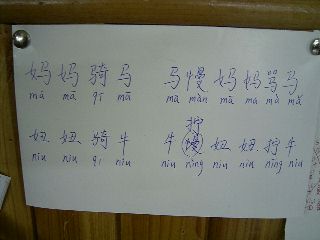 妈妈骑马 马慢妈妈骂马
mā mā qí mǎ mǎ màn mā mā mà mǎ
拧
妞妞骑牛 牛慢妞妞拧牛
niu niu qi niu niu ning niu niu ning niu